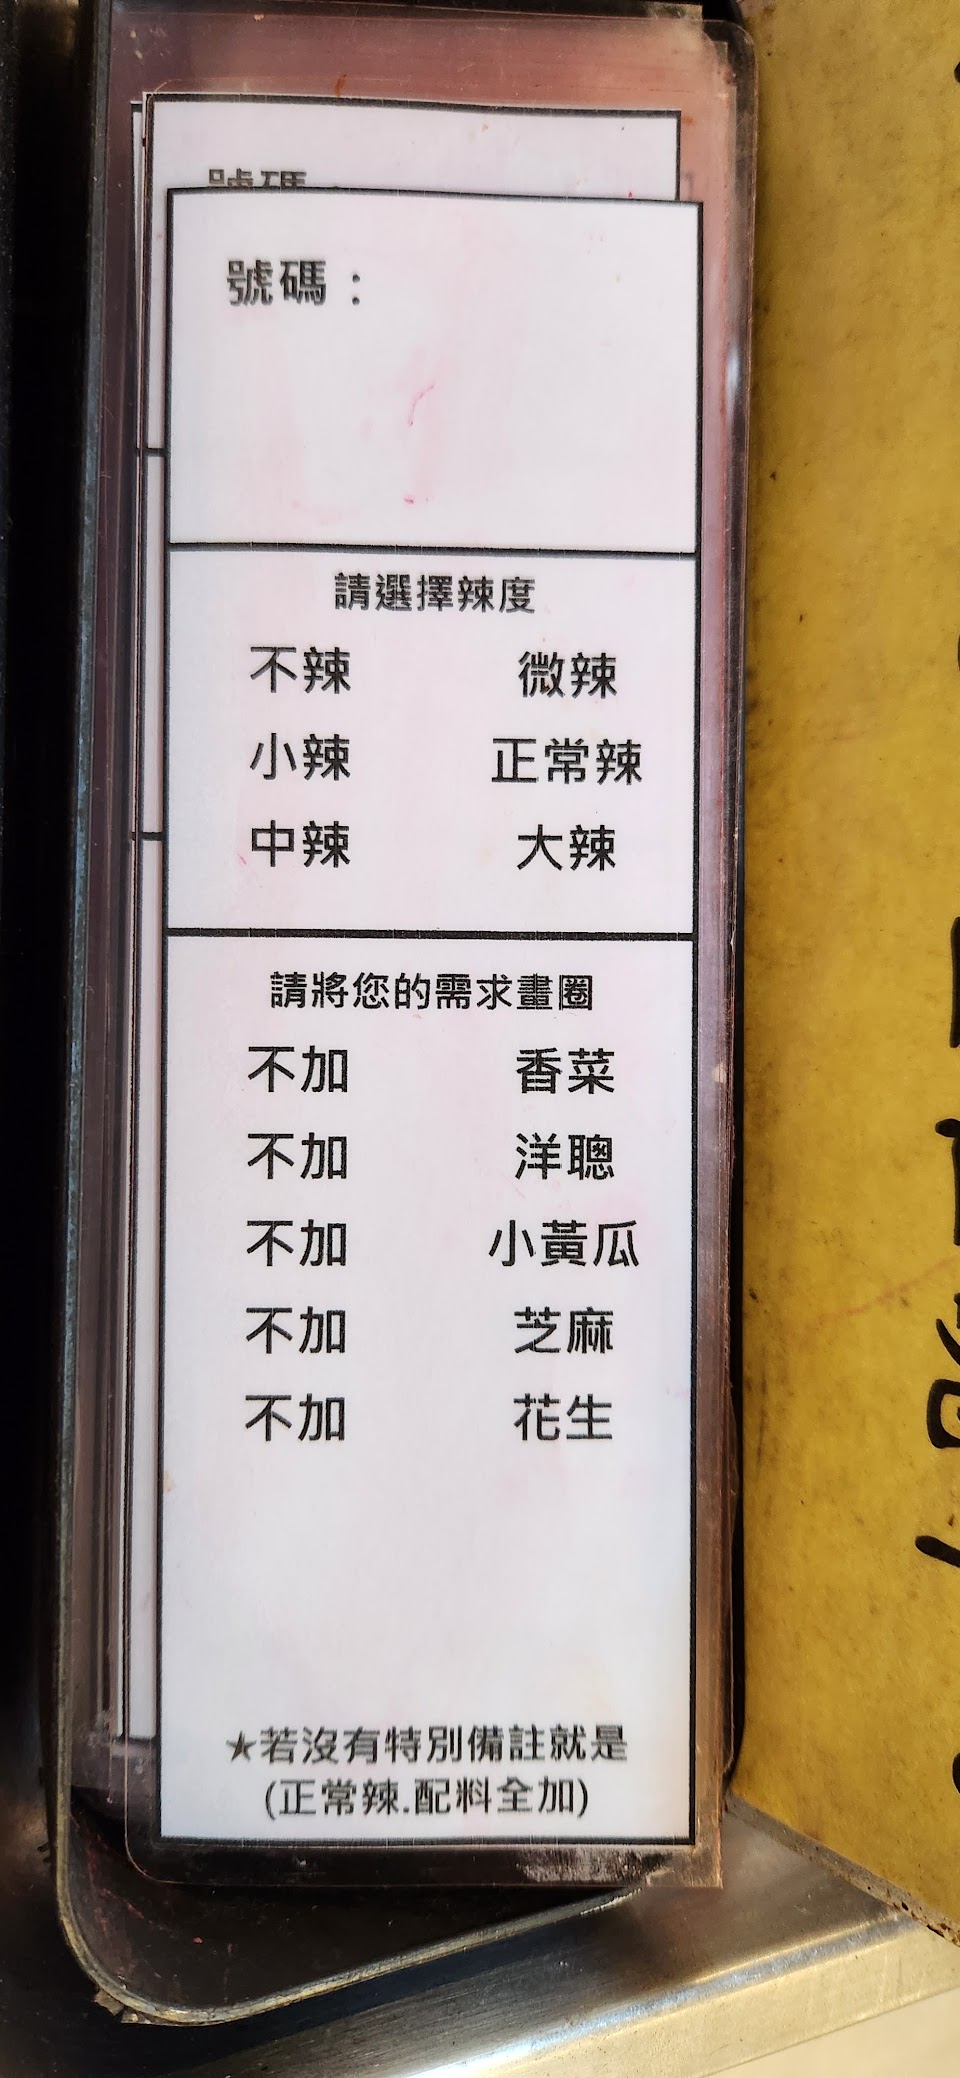 號碼：
請選擇辣度
不辣 微辣
小辣 正常辣
中辣 大辣
請將您的需求畫圈
不加 香菜
不加 洋聰
不加 小黃瓜
不加 芝麻
不加 花生
★若沒有特別備註就是
(正常辣.配料全加)